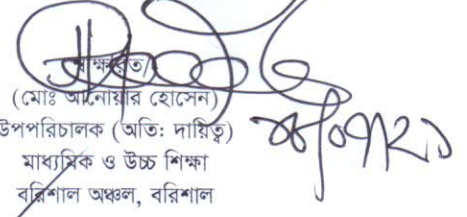 স্বাক্ষরিত/
(মোঃ আনোয়ার হোসেন)
উপপরিচালক (অতি: দায়িত্ব)
মাধ্যমিক ও উচ্চ শিক্ষা
বরিশাল অঞ্চল, বরিশাল